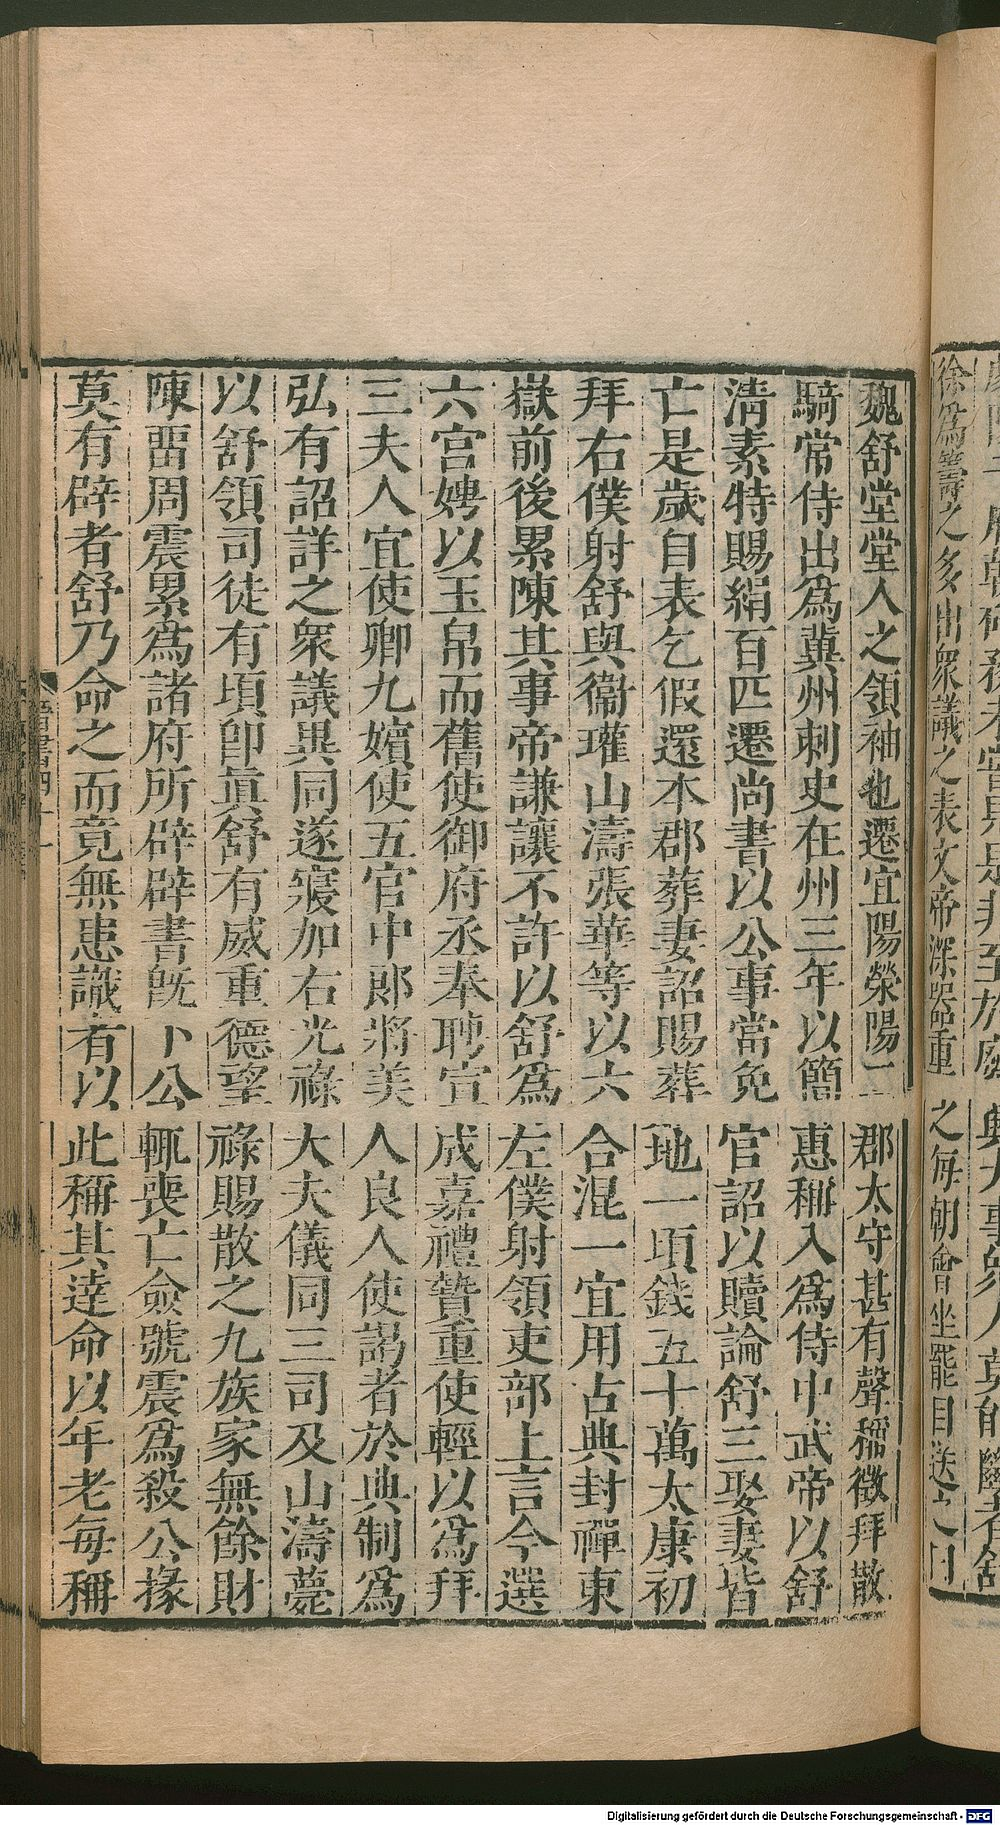 徐爲籌之多出衆議之表文帝深器重之每朝會坐罷目送之曰
魏舒堂堂人之領袖也遷宜陽滎陽二郡太守甚有聲稱徵拜散
騎常侍出爲冀州刺史在州三年以簡惠稱入爲侍中武帝以舒
淸素特賜絹百匹遷尚書以公事當免官詔以贖論舒三娶妻皆
亡是歲自表乞假還本郡葬妻詔賜葬地一頃錢五十萬太康初
拜右僕射舒與衞瓘山濤張華等以六合混一宜用古典封禪東
嶽前後累陳其事帝謙讓不許以舒爲左僕射領吏部上言今選
六宮娉以玉帛而舊使御府丞奉聘宣成嘉禮贄重使輕以爲拜
三夫人宜使卿九嬪使五官中郞將美人良人使謁者於典制爲
弘有詔詳之衆議異同遂寢加右光祿大夫儀同三司及山濤薨
以舒領司徒有頃卽眞舒有威重德望祿賜散之九族家無餘財
陳畱周震累爲諸府所辟辟書旣下公輒喪亡僉號震爲殺公掾
莫有辟者舒乃命之而竟無患識者以此稱其達命以年老每稱
晉書四十一
Digitalisierung gefördert durch die Deutsche Forschungsgemeinschaft - DFG